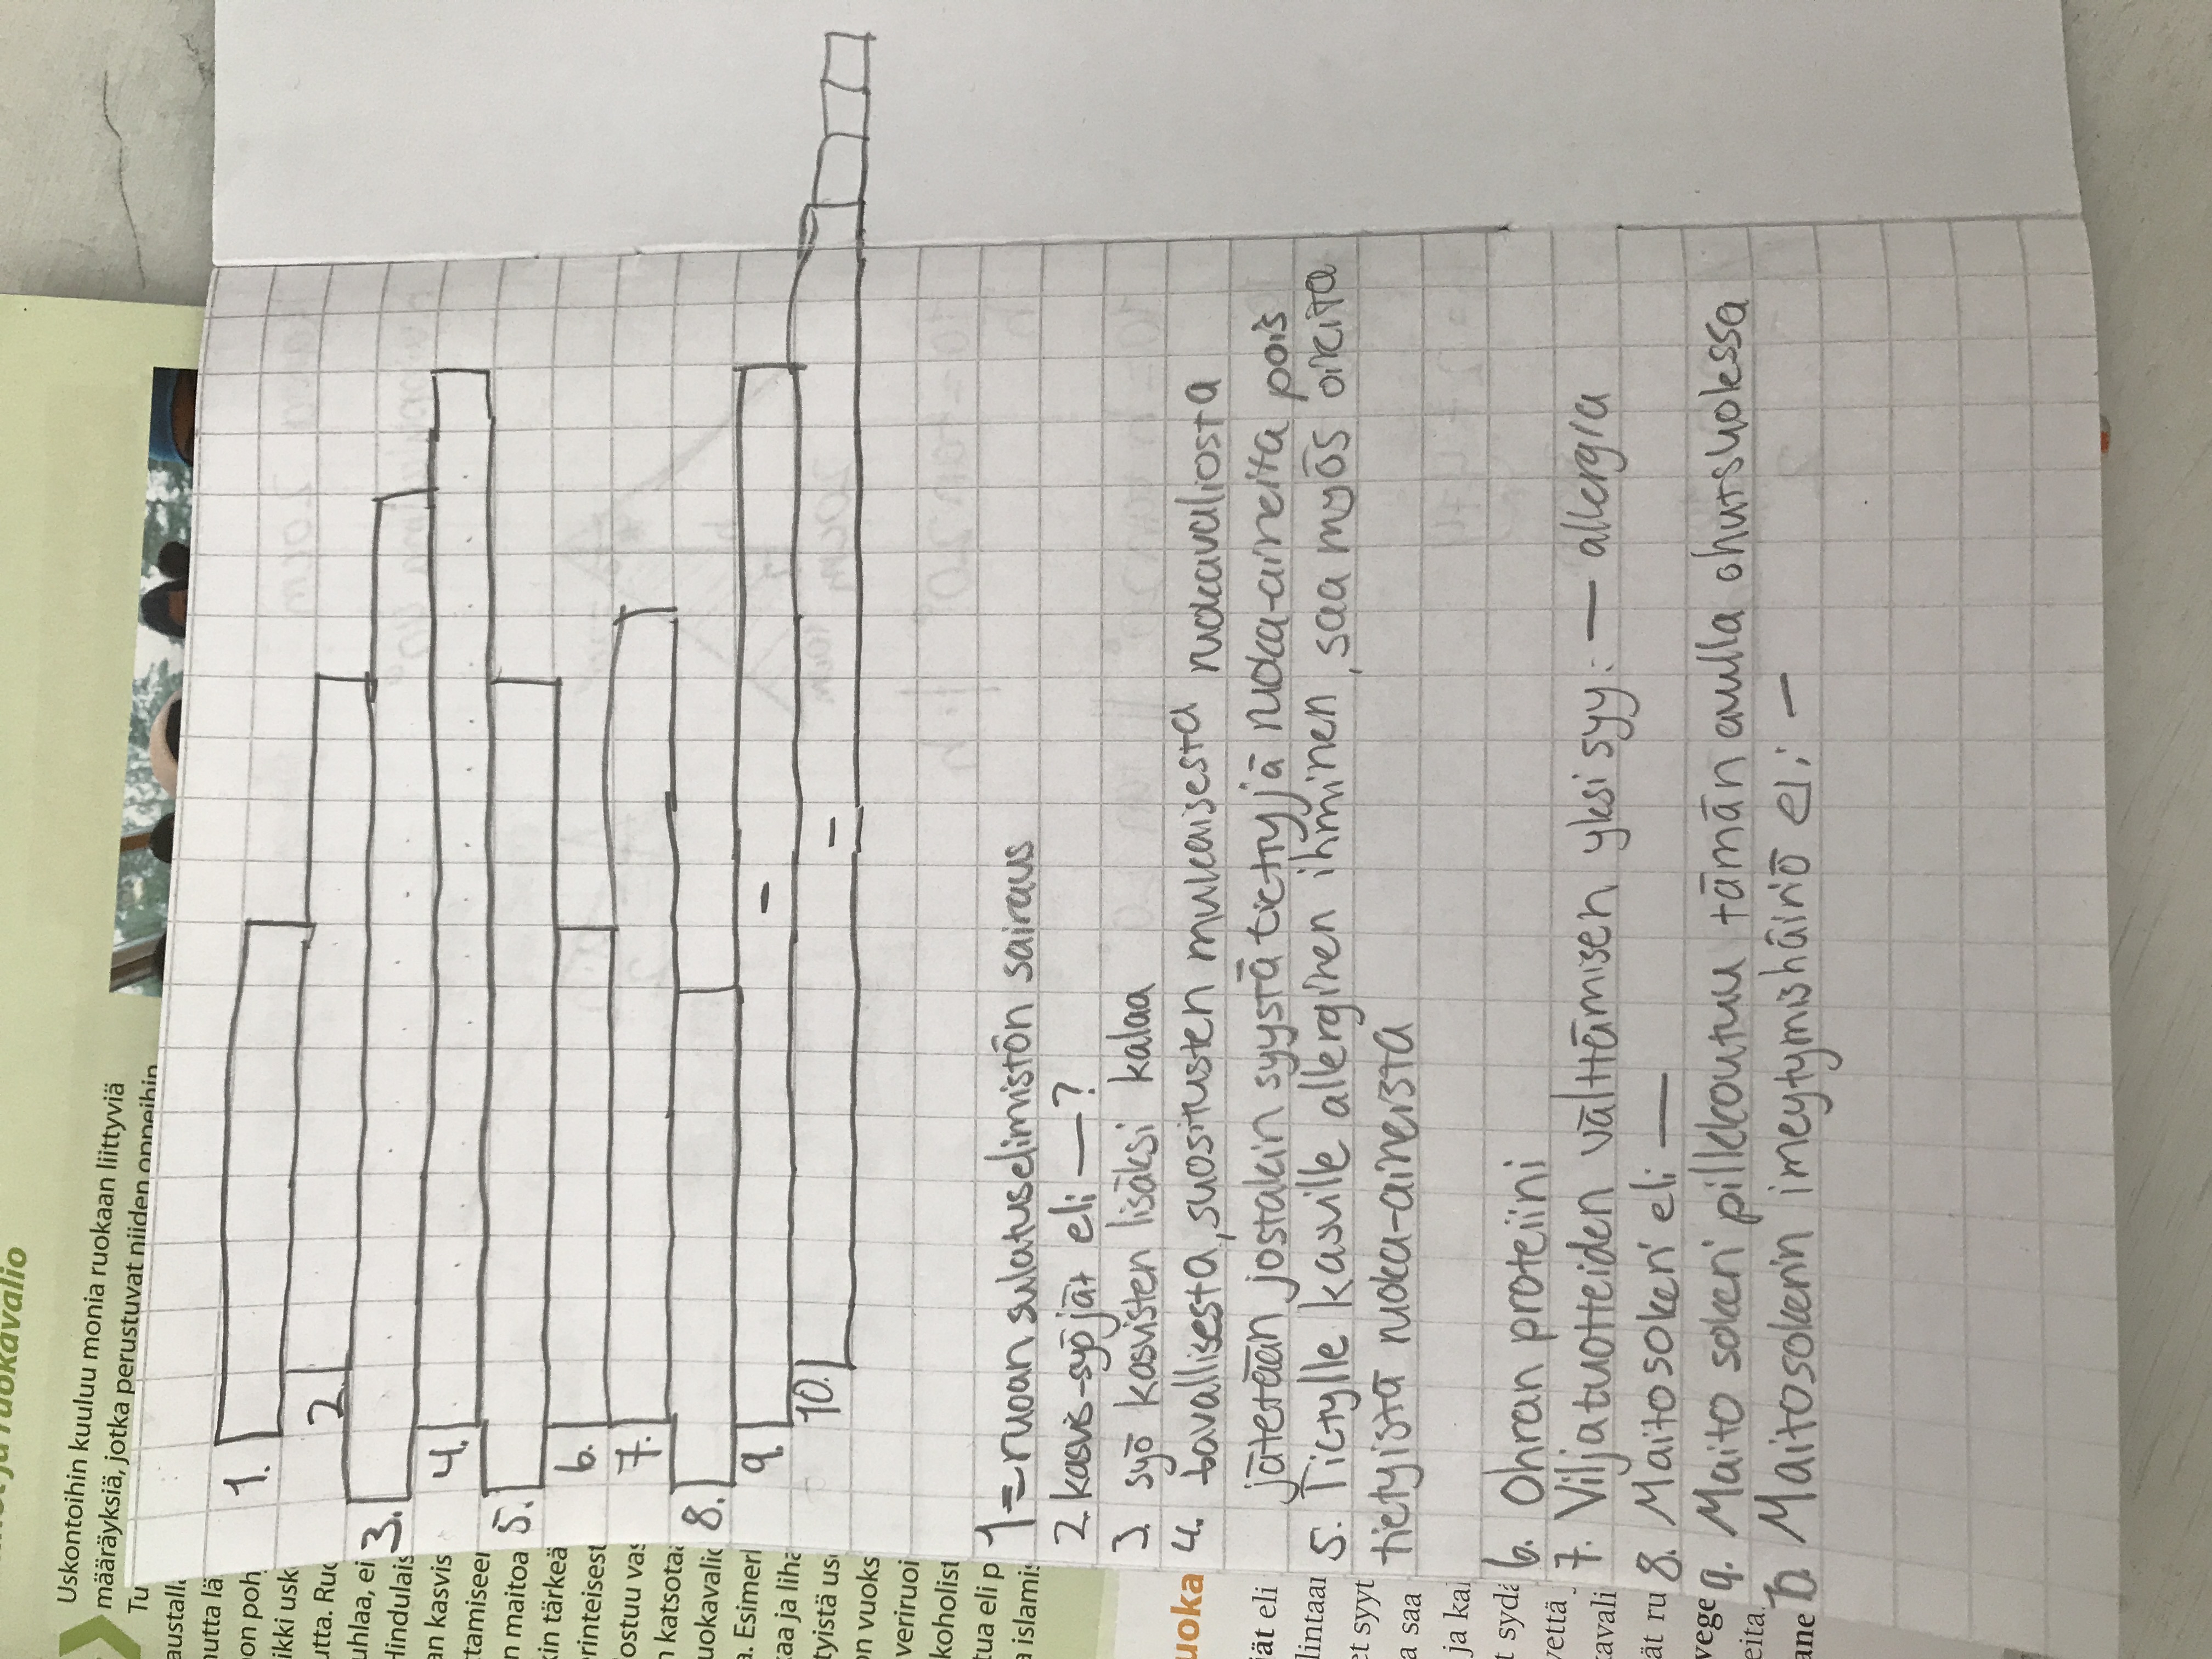 ja ruokavalio
Uskontoihin kuuluu monia ruokaan liittyviä
määräyksiä, jotka perustuvat niiden oppeihin
Tu
austalla
mutta lä
on poh
ikki usk
utta. Ruo
uhlaa, ei
Hindulais
an kasvis
ttamiseen
n maitoa
kin tärkeä
erinteisest
ostuu vas
n katsotaa
uokavalio
a. Esimerk
kaa ja liha
tyistä us
on vuoks
veriruoi
koholist
tua eli p
a islamis
uoka
ät eli
lintaan
et syyt
a saa
ja kal
t sydä
vettä
kavali
ät ru
vege
eita.
ane
1.
2.
3.
4.
5.
6.
7.
8.
9. –
10. –
1=ruoan sulatuselimistön sairaus
2 kasvis-syöjät eli — ?
3. syö kasvisten lisäksi kalaa
4. tavallisesta, suositusten mukaisesta ruokavaliosta
jätetään jostakin syystä tiettyjä ruoka-aineita pois
5. Tietylle kasville allerginen ihminen, saa myös oireita
tietyistä ruoka-aineista
6. Ohran proteiini
7. Viljatuotteiden välttämisen yksi syy: — allergia
8. Maitosokeri eli —
9. Maito sokeri pilkkoutuu tämän avulla ohutsuolessa
10. Maitosokerin imeytymishäiriö eli –